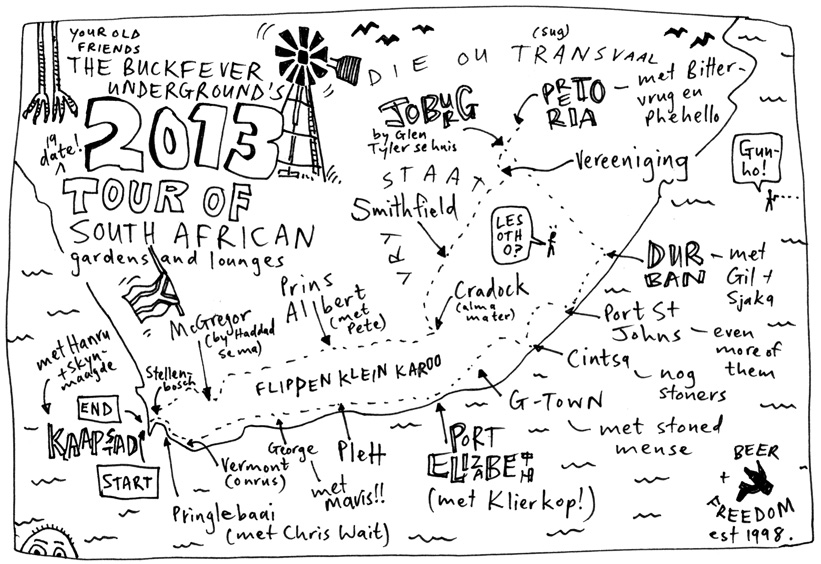 YOUR OLD
FRIENDS
THE BUCKFEVER
UNDERGROUND'S
19
date!
2013
TOUR OF
SOUTH AFRICAN
gardens and lounges
DIE OU TRANSVAAL
(sug)
JOBURG
by Glen
Tyler se huis
PRETORIA
met Bitter-
vrug en
Phehello
Vereeniging
Gun-
ho!
STAAT
VRY
Smithfield
LES
OTH
O?
DURBAN
met
Gil +
Sjaka
Prins
Albert
(met
Pete)
Cradock
(alma
mater)
Port St
Johns
even
more of
them
McGregor
(by Haddad
se ma)
met Hanru
+ Skyn-
maagde
Stellen-
bosch
FLIPPEN KLEIN KAROO
Cintsa
nog
stoners
END
KAAPSTAD
START
G-TOWN
met stoned
mense
Vermont
(onrus)
George
met
mavis!!
Plett
PORT
ELIZABETH
(met Klierkop!)
Pringlebaai
(met Chris Wait)
BEER
+
FREEDOM
est 1998.